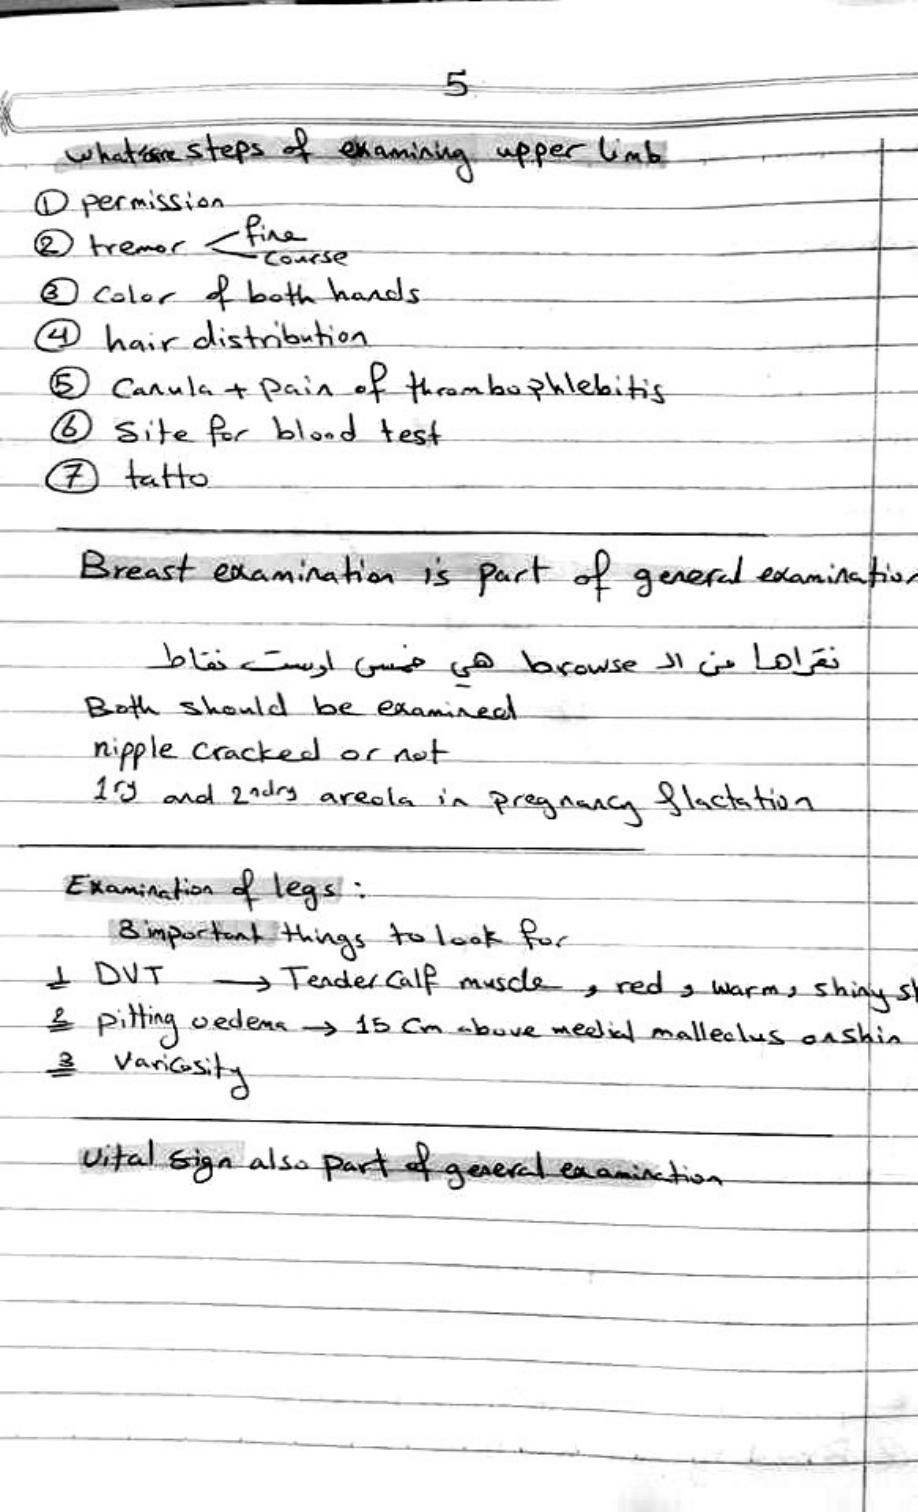 5
what are steps of examining upper limb
① permission
② tremor < fine
course
③ color of both hands
④ hair distribution
⑤ Canula + pain of thrombophlebitis
⑥ Site for blood test
⑦ tatto
Breast examination is part of general examination
نقراها من ال browse هي خمس اوست نقاط
Both should be examined
nipple cracked or not
1ry and 2ndry areola in pregnancy & lactation
Examination of legs :
3 important things to look for
1 DVT → Tender Calf muscle , red , warm , shiny
2 pitting oedema → 15 Cm above medial malleolus on shin
3 Varicosity
Vital sign also part of general examination